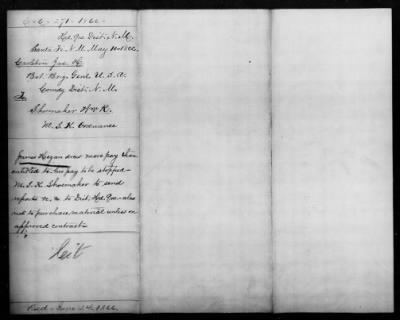 Hd. Qrs Dist. N. M.
Santa Fe N. M. May 1866.
Carleton Jas H.
Bvt. Brig. Genl U. S. A.
Comdg Dist. N. M.
To
Shoemaker Wm R.
M. S. K. Ordnance
James Hogan drew more pay than
entitled to his pay to be stopped —
M. S. K. Shoemaker to send
reports &c. to Dist. Hd. Qrs. also
not to purchase material unless on
approved contracts
Recd. June 1866.